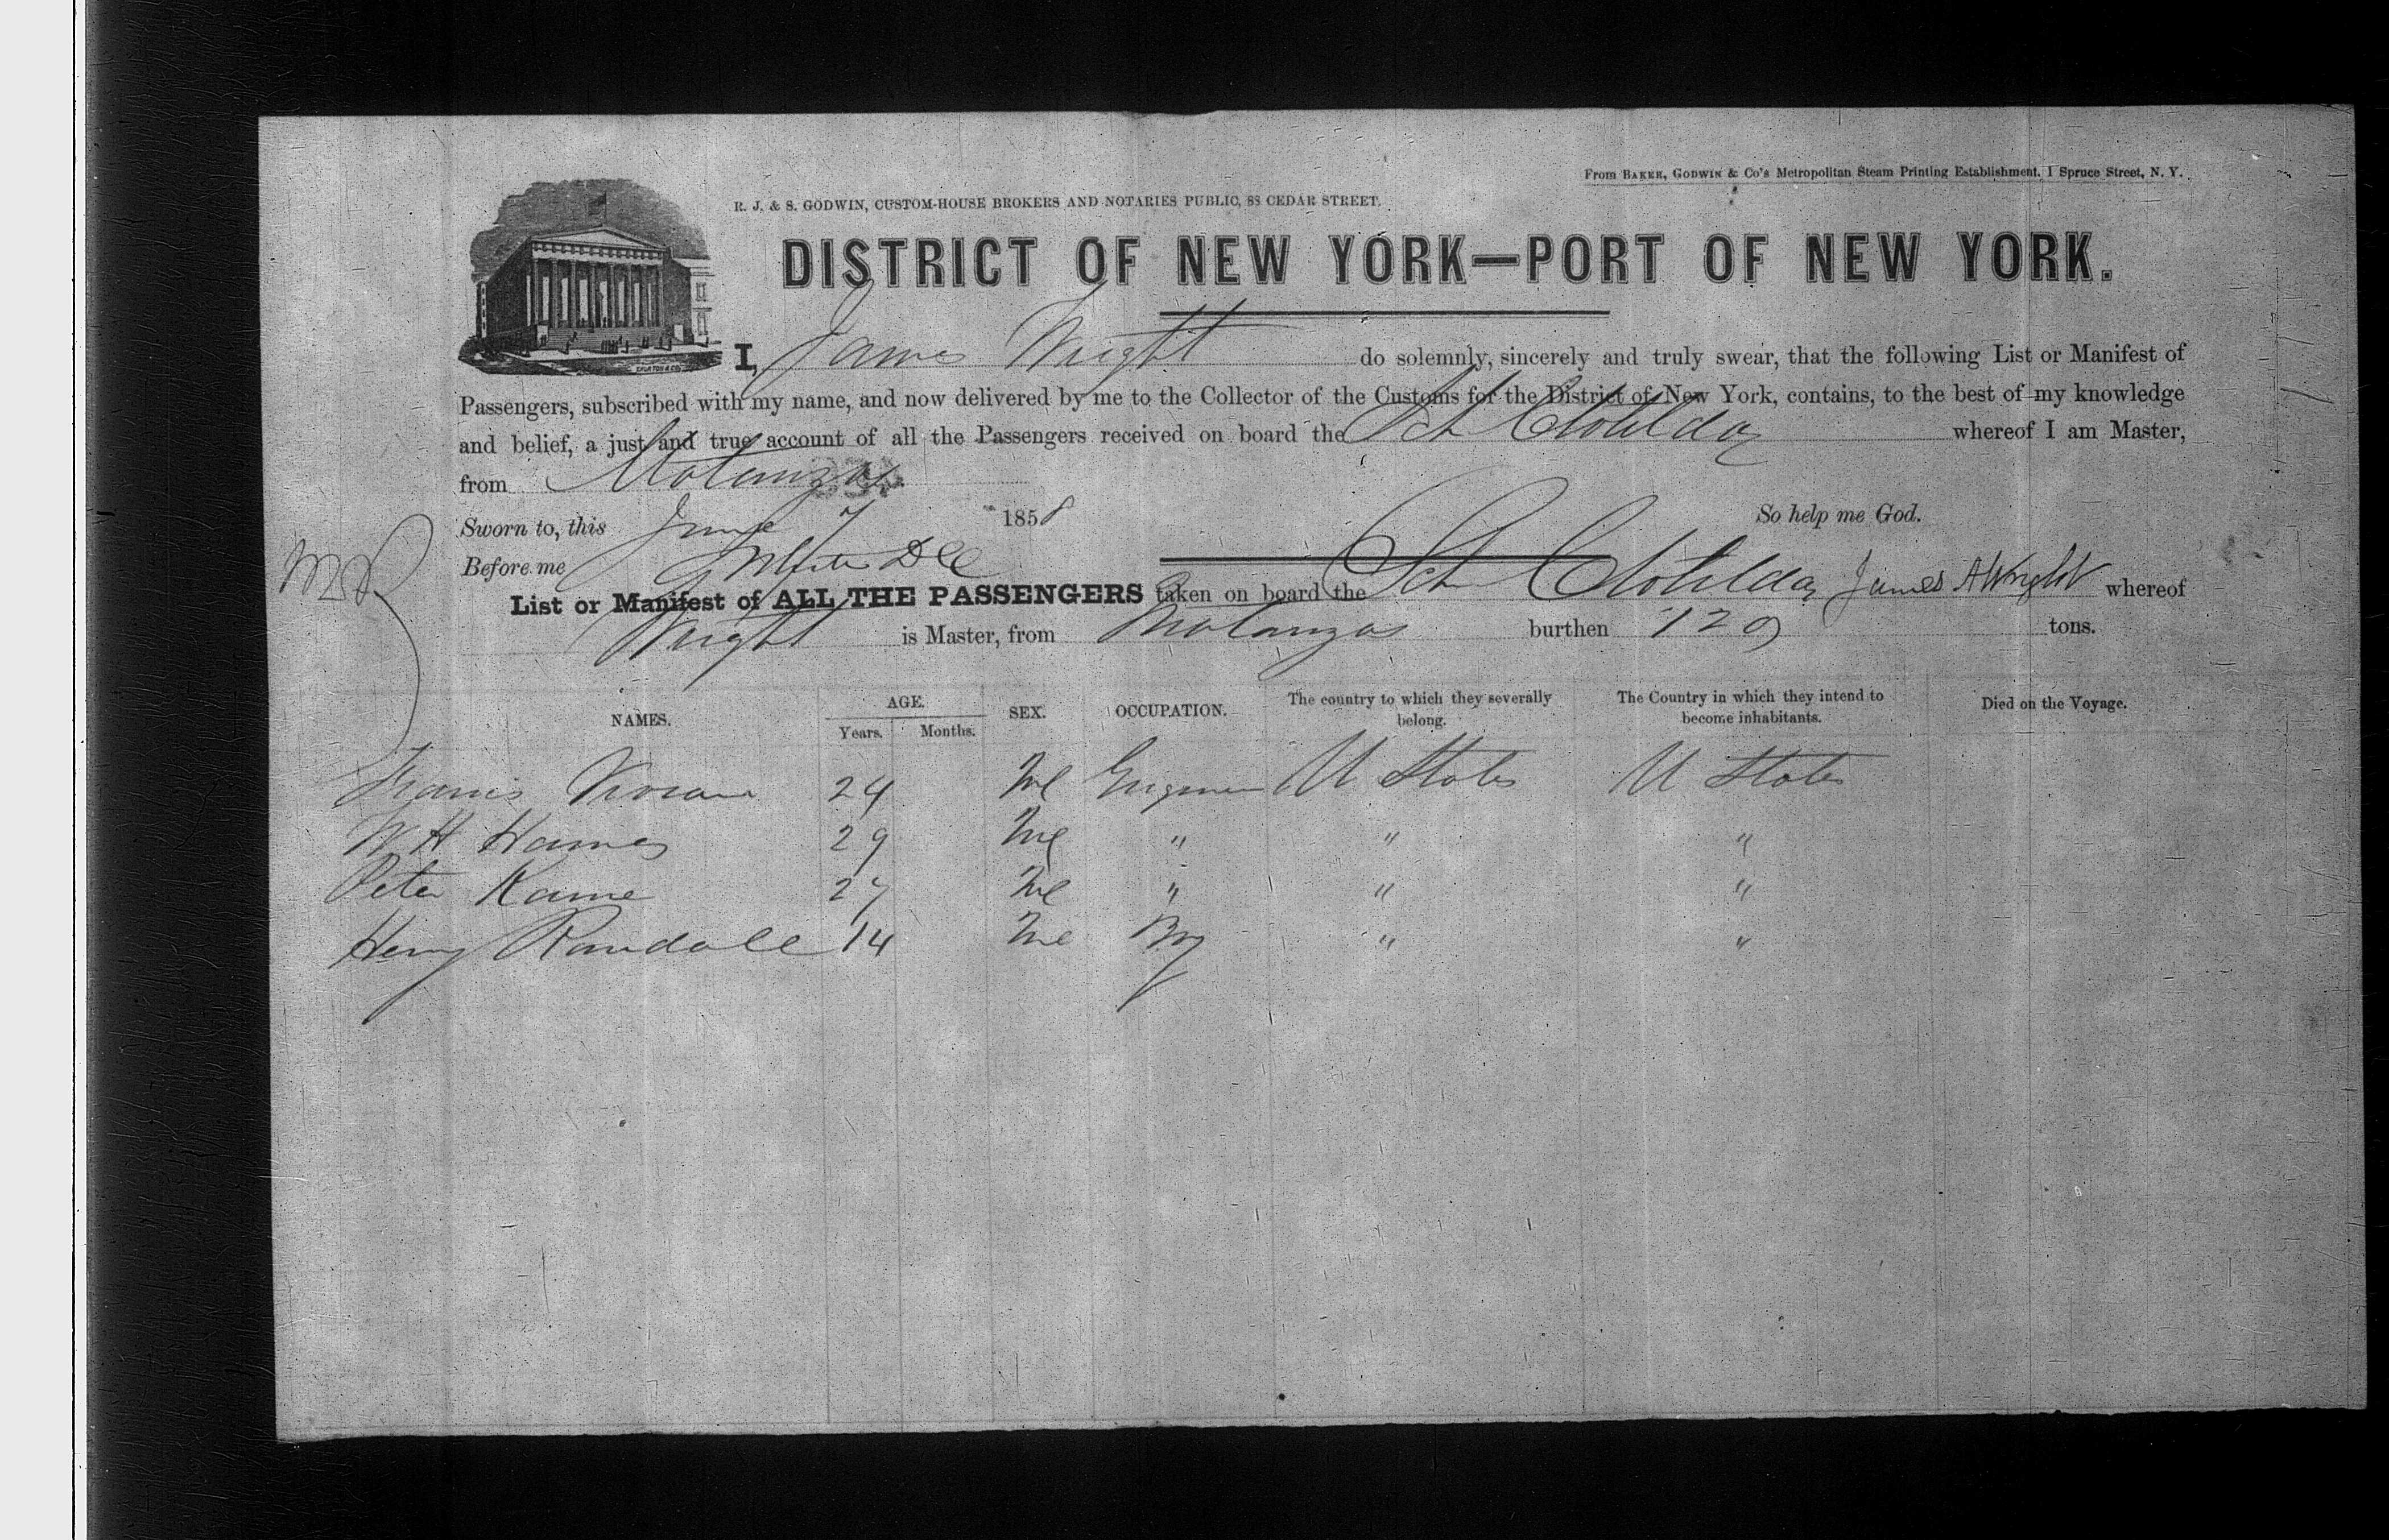 From BAKER, GODWIN & Co's Metropolitan Steam Printing Establishment, 1 Spruce Street, N. Y.
R. J. & S. GODWIN, CUSTOM-HOUSE BROKERS AND NOTARIES PUBLIC, 88 CEDAR STREET.
DISTRICT OF NEW YORK—PORT OF NEW YORK.
I, James Wright do solemnly, sincerely and truly swear, that the following List or Manifest of
Passengers, subscribed with my name, and now delivered by me to the Collector of the Customs for the District of New York, contains, to the best of my knowledge
and belief, a just and true account of all the Passengers received on board the Sch Clotilda whereof I am Master,
from Matanzas
Sworn to, this June 7 1858 So help me God.
Before me
List or Manifest of ALL THE PASSENGERS taken on board the Sch Clotilda James A Wright whereof
Wright is Master, from Matanzas burthen 129 tons.
NAMES. AGE. Years. Months. SEX. OCCUPATION. The country to which they severally belong. The Country in which they intend to become inhabitants. Died on the Voyage.
Francis 24 Ml U States U States
W H Hames 29 Ml " " "
Peter Kame 27 Ml " " "
Henry Randall 14 Ml Boy " "